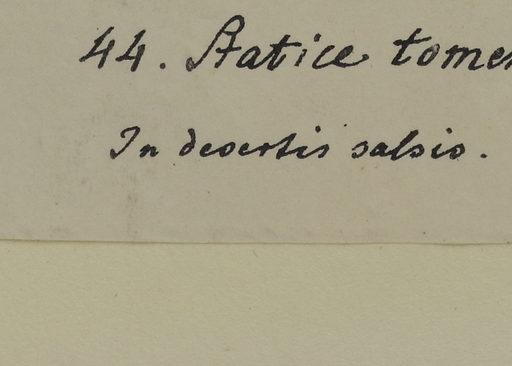 44. Statice tomen
In desertis salsis.